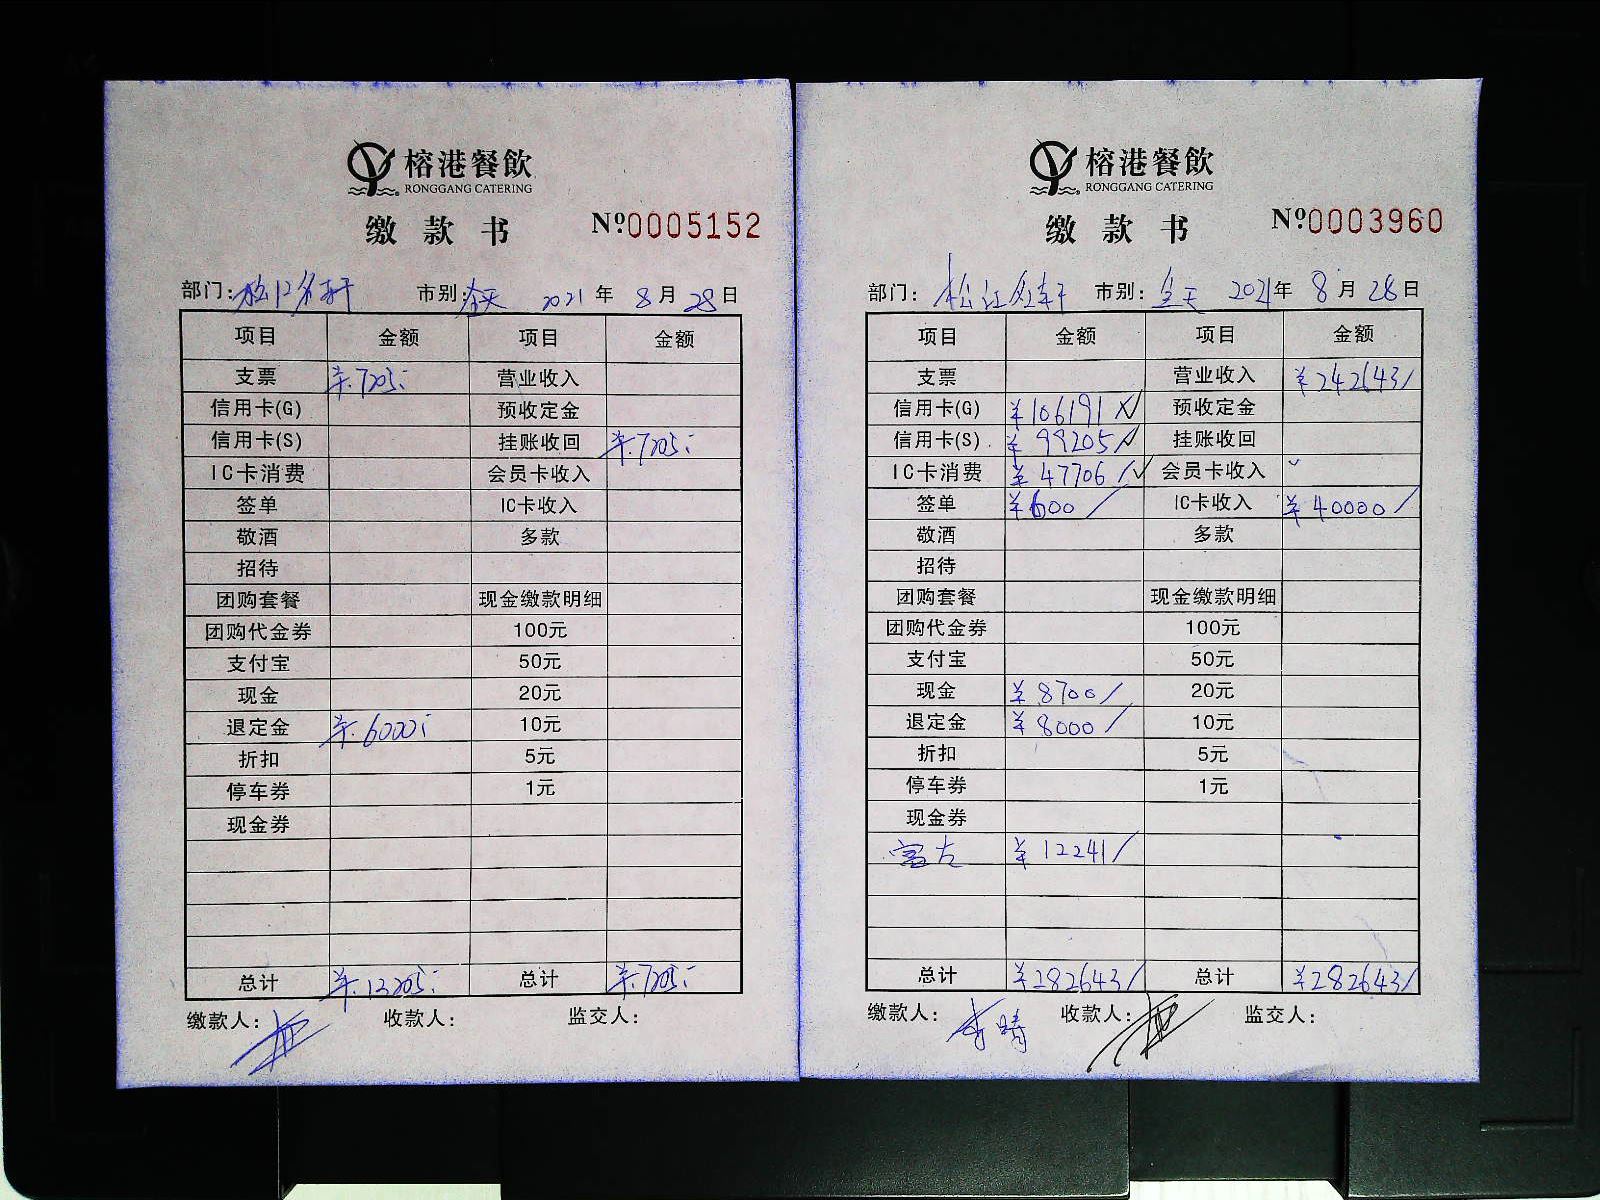 榕港餐飲
RONGGANG CATERING
缴款书 №0005152
部门: 市别:全天 2021年8月28日
项目 金额 项目 金额
支票 ¥.7205 营业收入
信用卡(G) 预收定金
信用卡(S) 挂账收回 ¥.7205
IC卡消费 会员卡收入
签单 IC卡收入
敬酒 多款
招待
团购套餐 现金缴款明细
团购代金券 100元
支付宝 50元
现金 20元
退定金 ¥.6000 10元
折扣 5元
停车券 1元
现金券
总计 ¥.13205 总计 ¥.7205
缴款人: 收款人: 监交人:
榕港餐飲
RONGGANG CATERING
缴款书 №0003960
部门:松江名轩 市别:全天 2021年8月28日
项目 金额 项目 金额
支票 营业收入 ¥242643/
信用卡(G) ¥106191/ 预收定金
信用卡(S) ¥99205/ 挂账收回
IC卡消费 ¥47706/ 会员卡收入
签单 ¥600/ IC卡收入 ¥40000/
敬酒 多款
招待
团购套餐 现金缴款明细
团购代金券 100元
支付宝 50元
现金 ¥8700/ 20元
退定金 ¥8000/ 10元
折扣 5元
停车券 1元
现金券
¥12241/
总计 ¥282643/ 总计 ¥282643/
缴款人: 收款人: 监交人: